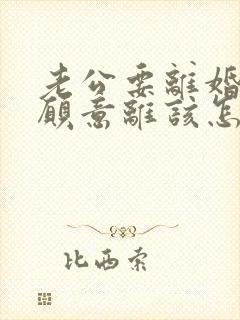 老公要離婚
願意離該怎
比西索